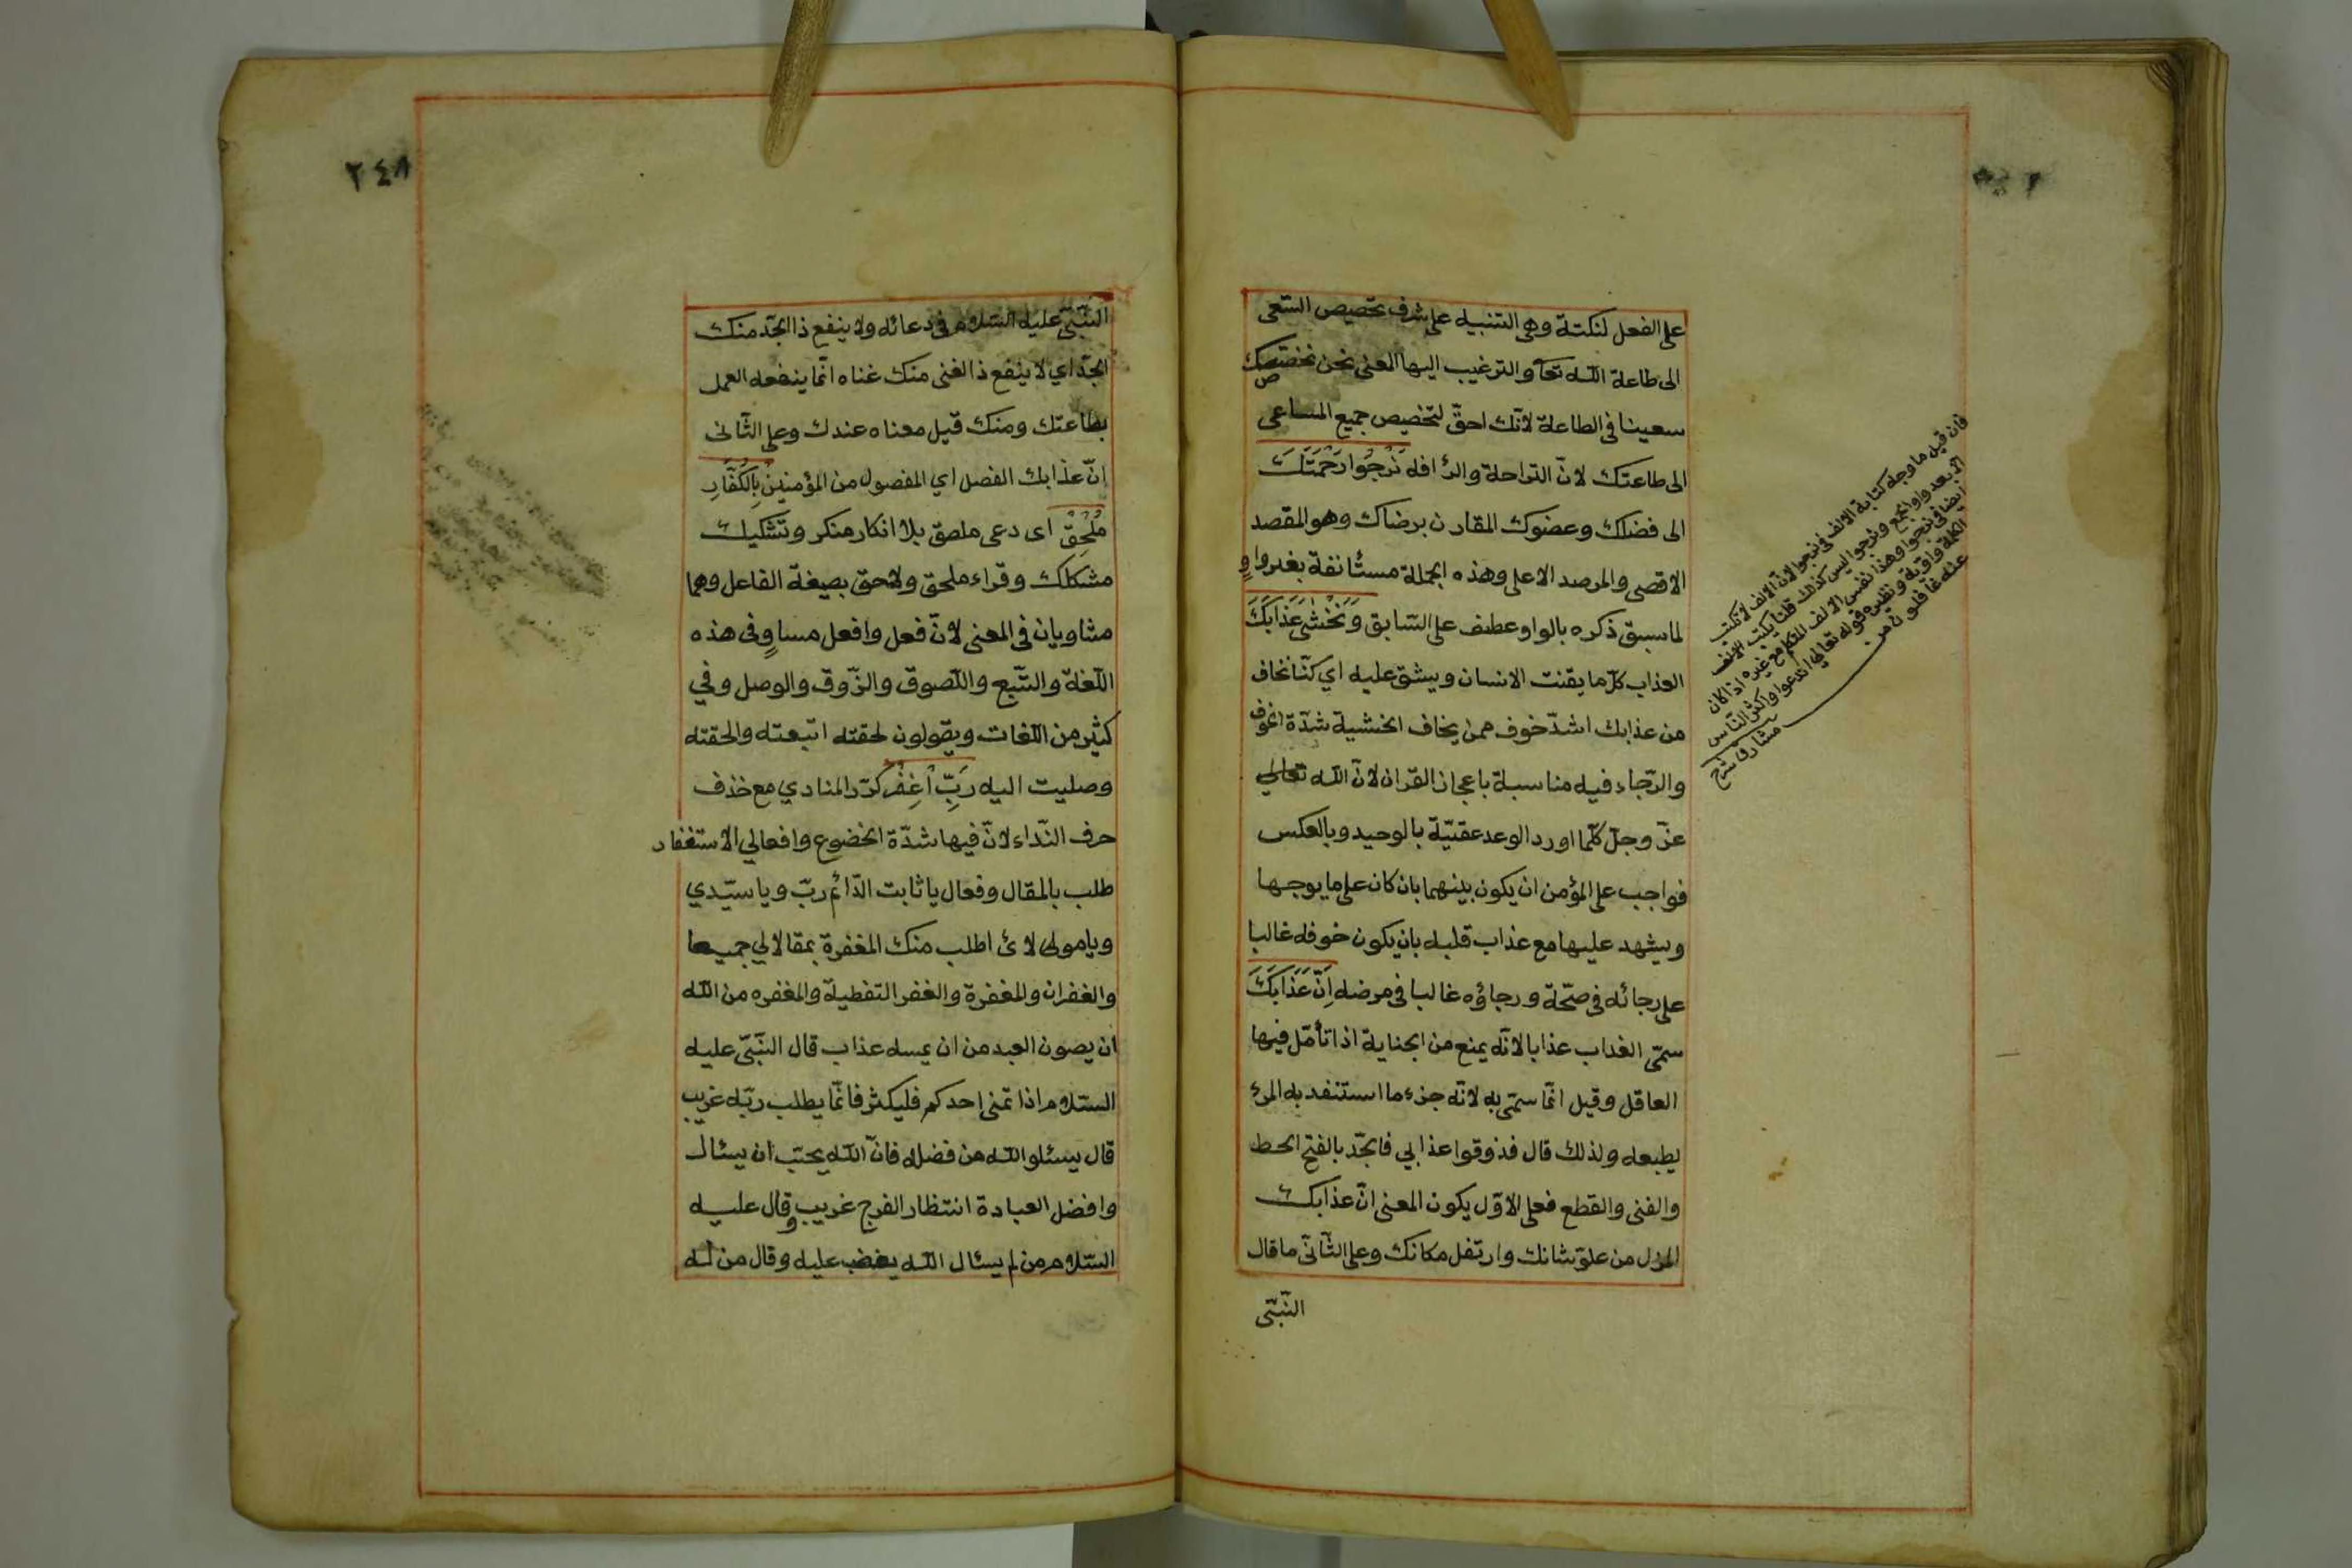 على الفعل لنكتة وهى التنبيه على شرف تخصيص السّعى
الى طاعة اللّه تعا والترغيب اليها المعنى نحن نخصّصك
سعينا فى الطاعة لانّك احقّ لتخصيص جميع المساعى
الى طاعتك لانّ التراحة والرٔافة نَرْجُوا رَحْمَتَكَ
الى فضلك وعضوك المقارن برضاك وهو المقصد
الاقصى والمرصد الاعلى وهذه الجملة مستٔانفة بغير واوٍ
لما سبق ذكره بالواو عطف على السّابق وَنَخْشٰى عَذَابَكَ
العذاب كلّ ما يقنت الانسان ويشق عليه اي كنّا نخاف
من عذابك اشدّ خوف ممن يخاف الخشية شدّة الخوف
والرّجاء فيه مناسبة باعجاز القرٓان لانّ اللّه تعالى
عزّ وجلّ كلّما اورد الوعد عقتيّة بالوحيد وبالعكس
فواجب على المؤمن ان يكون بينهما بان كان على ما يوجها
ويشهد عليها مع عذاب قلبه بان يكون خوفه غالبا
على رجائه فى صحّة ورجاؤه غالبا فى مرضه اِنَّ عَذَابَكَ
سمّى العذاب عذابا لانّه يمنع من الجناية اذا تأمّل فيها
العاقل وقيل انّما سمّى به لانّه جزء ما استنفد به المرء
يطبعه ولذلك قال فذوقوا عذابي فالجّد بالفتح الحط
والفنى والقطع فعلى الاوّل يكون المعنى انّ عذابك
المزل من علوّ شانك وارتفل مكانك وعلى الثّانىّ ما قال
النّبىّ
فان قيل ما وجه كتابة الالف فى نرجوا لانّ الالف لا تكتب
الّا بعد واو الجمع ونرجوا ليس كذلك قلنا يكتب الالف
ايضا فى نحو وهذا نفس الالف المتكلم مع غيره اذا كان
الكلمة واوية ونظيره قوله تعالى اندعوا واكثر النّاس
عنه غافلون من
مشارق شرح
٢٤٨
النّبىّ عليه السّلام فى دعائه ولا ينفع ذا الجدّ منك
الجدّ اي لا ينفع ذا الغنى منك غناه انّما ينفعه العمل
بطاعتك ومنك قيل معناه عندك وعلى الثّانى
انّ عذابك الفصل اي المفصول من المؤمنين بِالكُفَّارِ
مُلْحِقْ اى دعى ملصق بلا انكار منكر وتشكيك
مشكلك وقراء ملحق ولاحق بصيغة الفاعل وهما
مشاويان فى المعنى لانّ فعل وافعل مساوٍ وفى هذه
اللّغة والتّبع واللّصوق والزّوق والوصل وفي
كثير من اللّغات ويقولون لحقته اتبعته والحقته
وصليت اليه رَبِّ اغْفِرْ كرّر المنادي مع حذف
حرف النّداء لانّ فيها شدّة الخضوع وافعالي الاستغفار
طلب بالمقال وفعال يا ثابت الدّائم ربّ ويا سيّدي
ويا مولى لائ اطلب منك المغفرة بمقالالي جميعا
والغفران والمغفرة والغفر التغطية والمغفره من اللّه
ان يصون العبد من ان يمسه عذاب قال النّبىّ عليه
السّلام اذا تمنى احدكم فليكثر فانّما يطلب ربّه غريب
قال يسئلو اللّه من فضله فانّ اللّه يحبّ ان يسئال
وافضل العبادة انتظار الفرج غريب وقال عليه
السّلام من لم يسئال اللّه يغضب عليه وقال من له